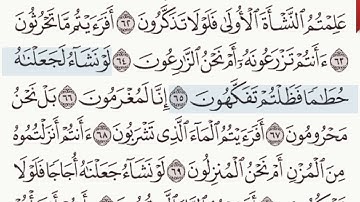 عَلِمْتُمُ ٱلنَّشْأَةَ ٱلْأُولَىٰ فَلَوْلَا تَذَكَّرُونَ ٦٢ أَفَرَءَيْتُم مَّا تَحْرُثُونَ
٦٣ ءَأَنتُمْ تَزْرَعُونَهُۥٓ أَمْ نَحْنُ ٱلزَّٰرِعُونَ ٦٤ لَوْ نَشَآءُ لَجَعَلْنَٰهُ
حُطَٰمًا فَظَلْتُمْ تَفَكَّهُونَ ٦٥ إِنَّا لَمُغْرَمُونَ ٦٦ بَلْ نَحْنُ
مَحْرُومُونَ ٦٧ أَفَرَءَيْتُمُ ٱلْمَآءَ ٱلَّذِى تَشْرَبُونَ ٦٨ ءَأَنتُمْ أَنزَلْتُمُوهُ
مِنَ ٱلْمُزْنِ أَمْ نَحْنُ ٱلْمُنزِلُونَ ٦٩ لَوْ نَشَآءُ جَعَلْنَٰهُ أُجَاجًا فَلَوْلَا